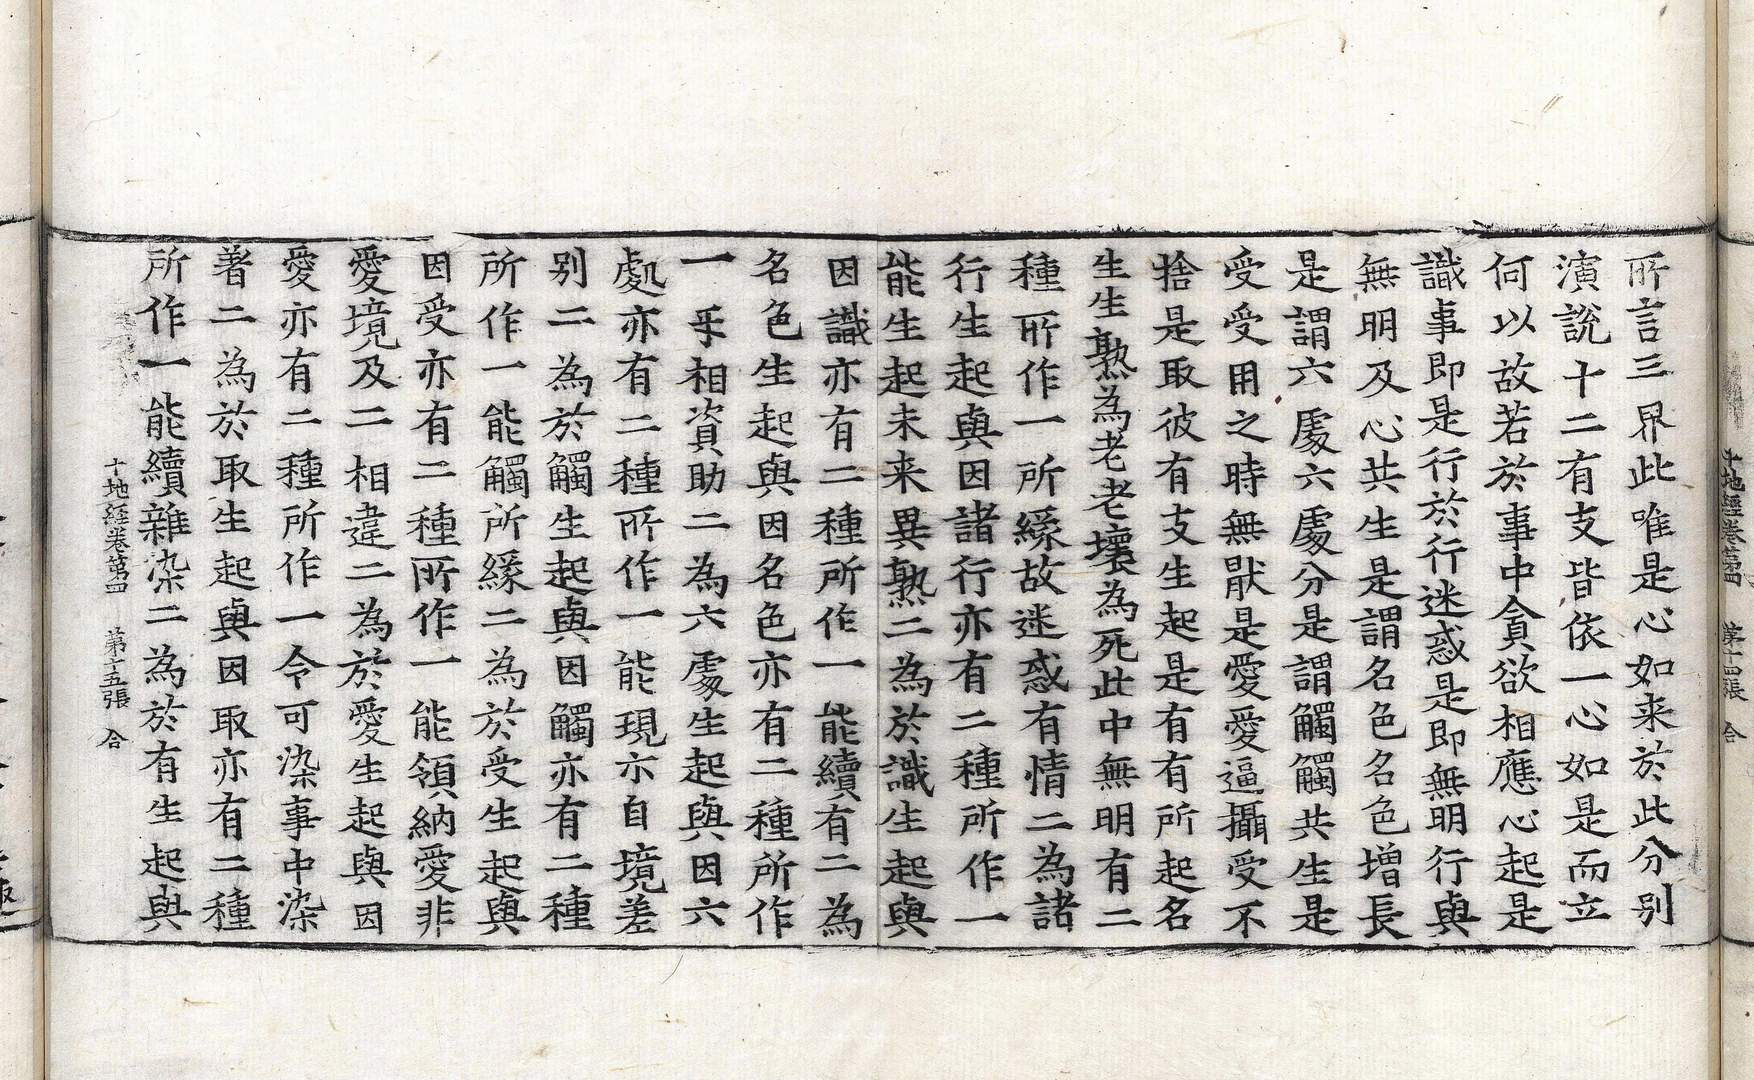 所言三界此唯是心如来於此分别
演說十二有支皆依一心如是而立
何以故若於事中貪欲相應心起是
識事即是行於行迷惑是即無明行與
無明及心共生是謂名色名色增長
是謂六處六處分是謂觸觸共生是
受受用之時無猒是愛愛逼攝受不
捨是取彼有支生起是有有所起名
生生熟為老老壞為死此中無明有二
種所作一所緣故迷惑有情二為諸
行生起與因諸行亦有二種所作一
能生起未来異熟二為於識生起與
因識亦有二種所作一能續有二為
名色生起與因名色亦有二種所作
一㸦相資助二為六處生起與因六
處亦有二種所作一能現亦自境差
别二為於觸生起與因觸亦有二種
所作一能觸所緣二為於受生起與
因受亦有二種所作一能領納愛非
愛境及二相違二為於愛生起與因
愛亦有二種所作一令可染事中染
著二為於取生起與因取亦有二種
所作一能續雜染二為於有生起與
十地經卷第四 第十五張 合
十地經卷第四 第十四張 合